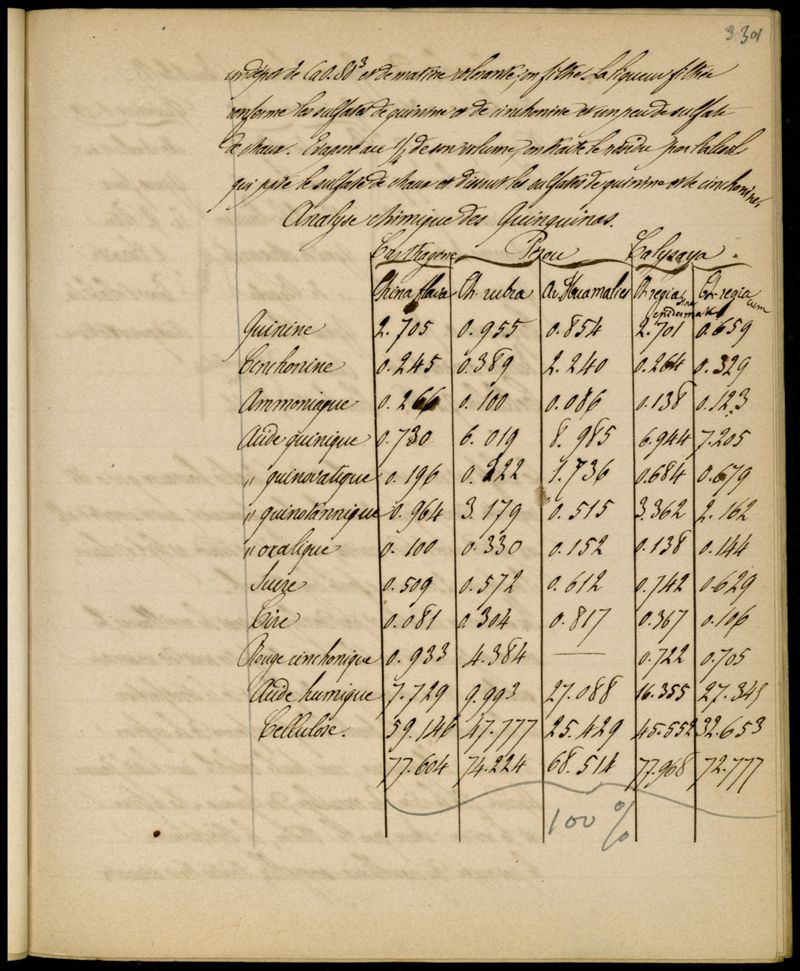 330
un dépôt de CaO.SO3 et de matière colorante; on filtre. La liqueur filtrée
renferme les sulfates de quinine et de cinchonine et un peu de sulfate
de chaux. Evaporé au 1/4 de son volume, on traite le résidu par l'alcool
qui ppte le sulfate de chaux et dissout les sulfates de quinine et de cinchonine.
Analyse chimique des Quinquinas.
Carthagène Pérou Calysaya.
China flava Ch. rubra Ch. Huamalies Ch. regia sine epidermate Ch. regia cum
Quinine 2.705 0.955 0.854 2.701 0.659
Cinchonine 0.245 0.389 2.240 0.264 0.329
Ammoniaque 0.266 0.100 0.086 0.138 0.123
Acide quinique 0.730 6.019 8.985 6.944 7.205
" quinovatique 0.196 0.222 1.736 0.684 0.679
" quinotannique 0.964 3.179 0.515 3.362 2.162
" oxalique 0.100 0.330 0.152 0.138 0.144
Sucre 0.509 0.572 0.612 0.742 0.629
Cire 0.081 0.304 0.817 0.367 0.106
Rouge cinchonique 0.933 4.384 — 0.722 0.705
Acide humique 7.729 9.993 27.088 16.355 27.345
Cellulose. 59.146 47.777 25.429 45.552 32.653
77.604 74.224 68.514 77.968 72.777
100 %